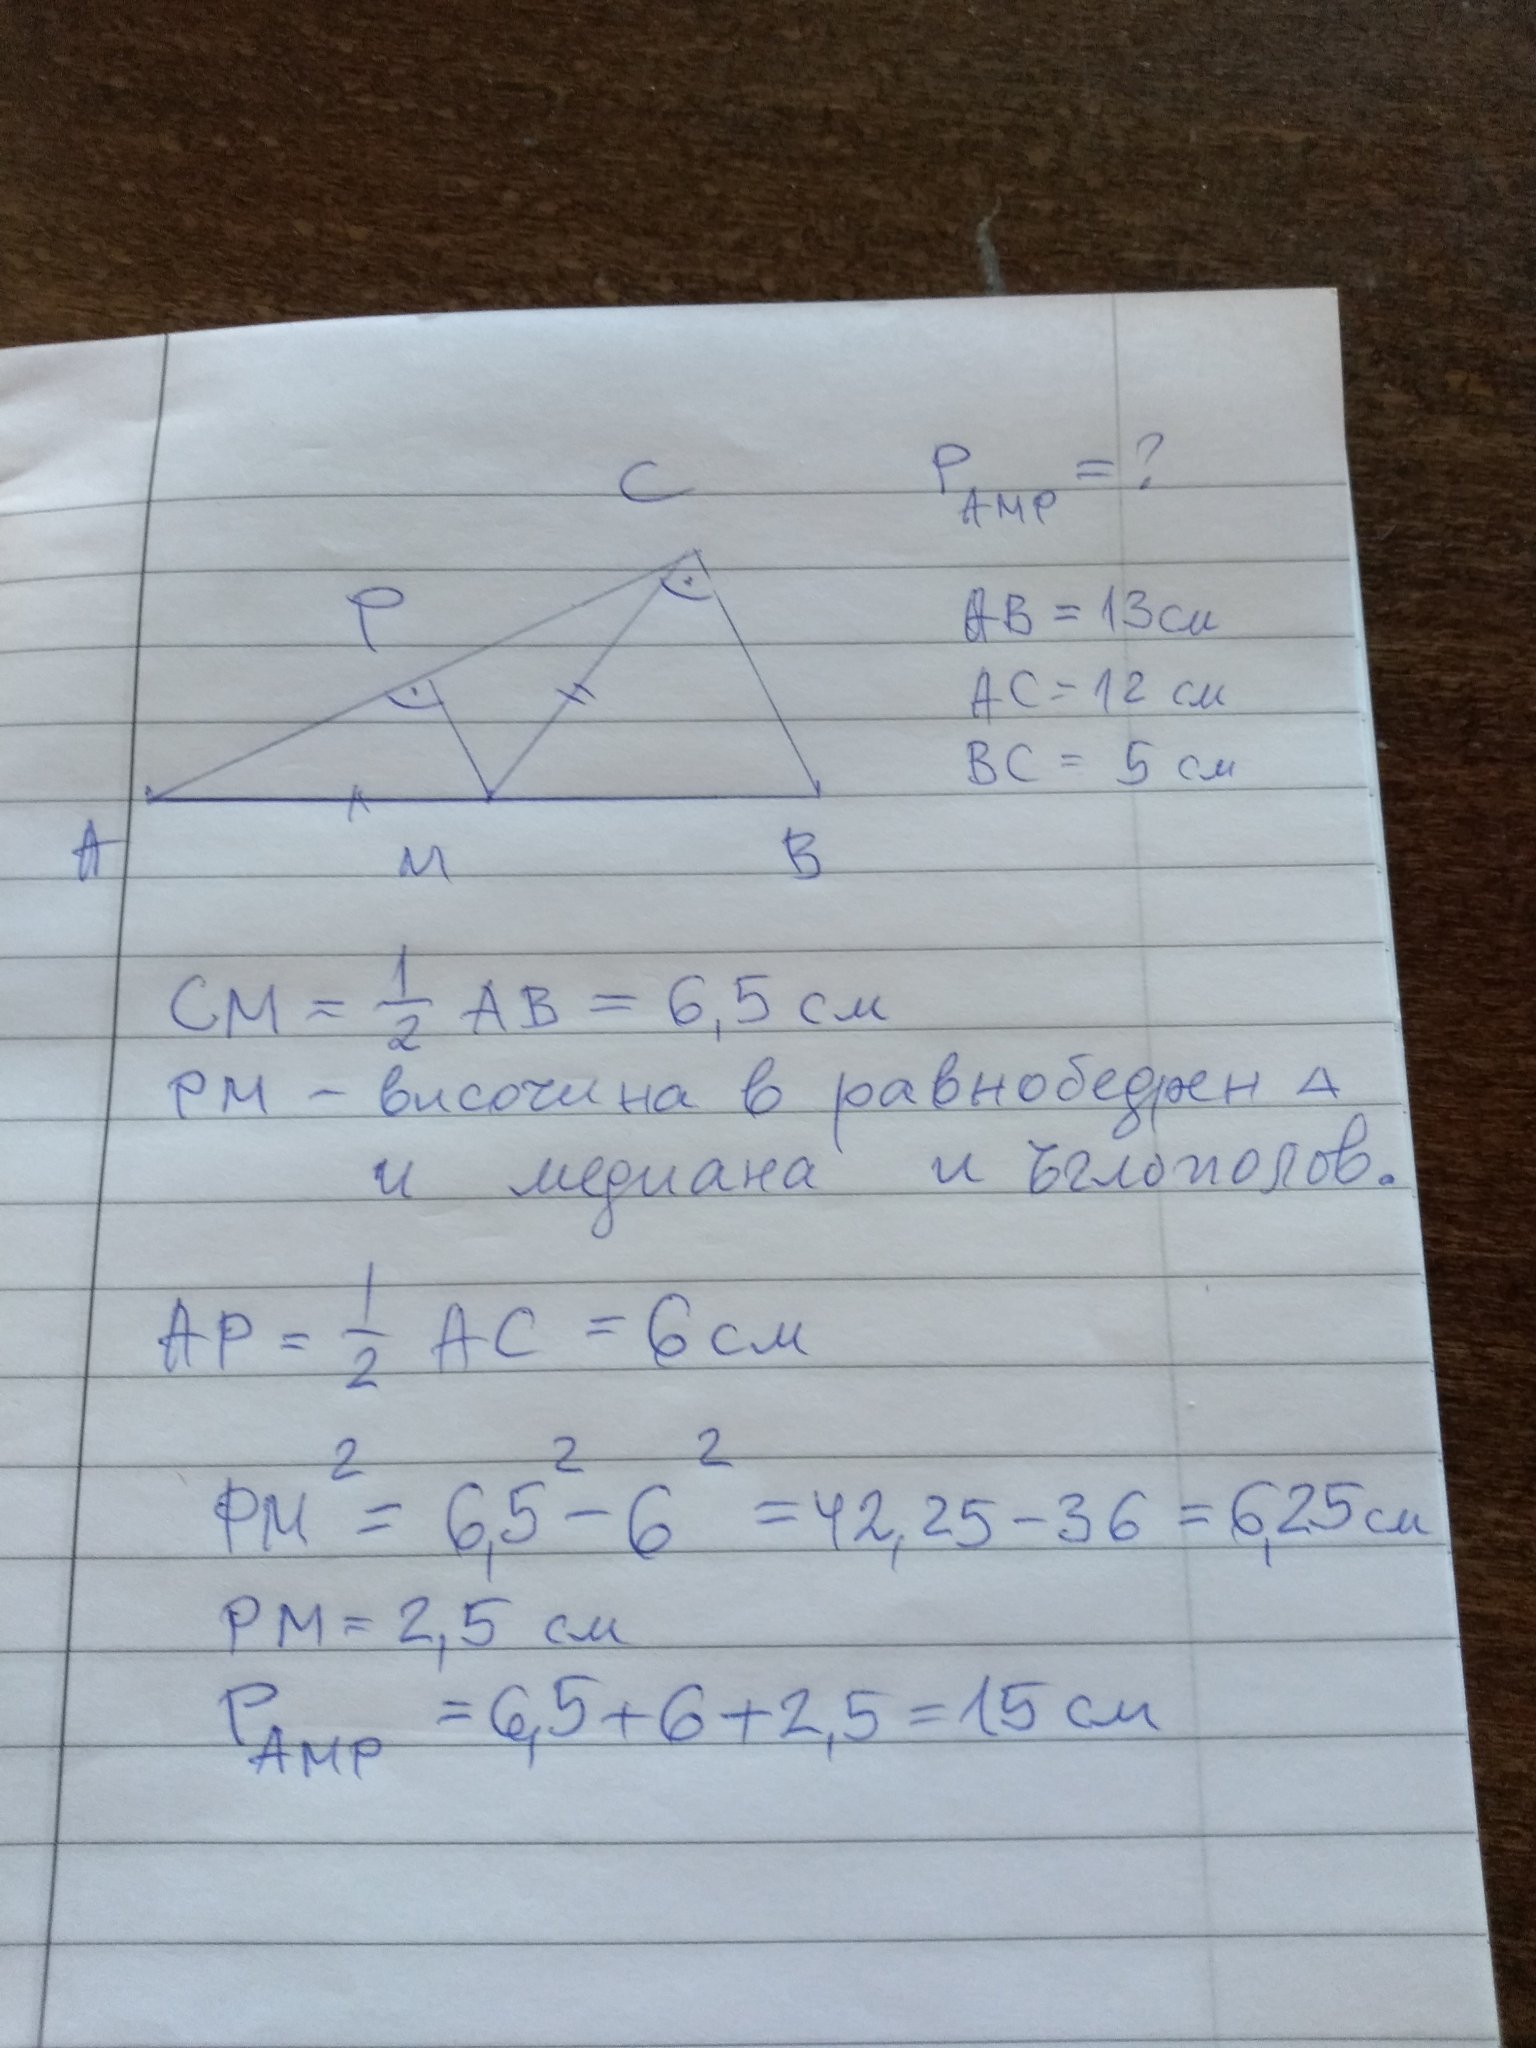 C
P_AMP = ?
P
AB = 13 см
AC = 12 см
BC = 5 см
A
M
B
CM = 1/2 AB = 6,5 см
PM – височина в равнобедрен Δ
и медиана и ъглополов.
AP = 1/2 AC = 6 см
PM² = 6,5² – 6² = 42,25 – 36 = 6,25 см
PM = 2,5 см
P_AMP = 6,5 + 6 + 2,5 = 15 см